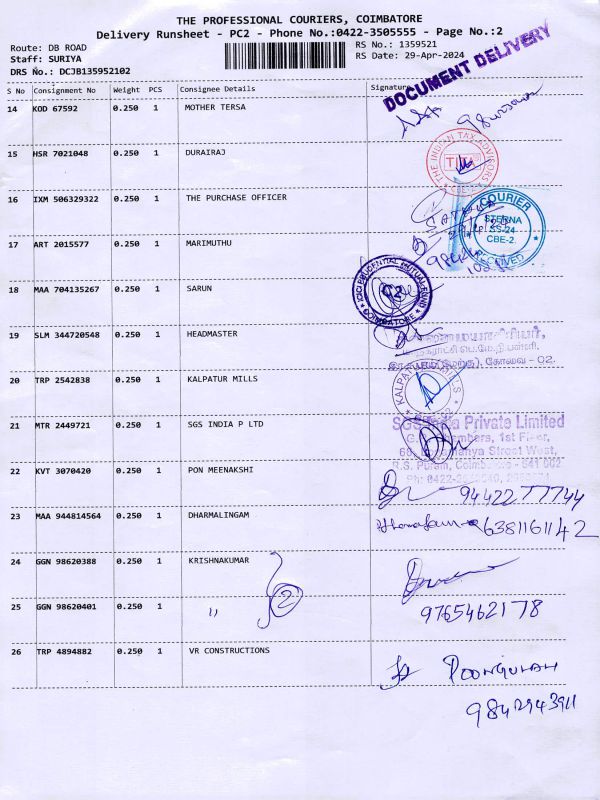 THE PROFESSIONAL COURIERS, COIMBATORE
Delivery Runsheet - PC2 - Phone No.:0422-3505555 - Page No.:2
Route: DB ROAD
RS No.: 1359521
Staff: SURIYA
RS Date: 29-Apr-2024
DRS No.: DCJB135952102
DOCUMENT DELIVERY
S No Consignment No Weight PCS Consignee Details Signature
14 KOD 67592 0.250 1 MOTHER TERSA
15 HSR 7021048 0.250 1 DURAIRAJ
THE INDIAN TAX ADVISORS
16 IXM 506329322 0.250 1 THE PURCHASE OFFICER
COURIER
STERNA
SS-24
CBE-2.
RECEIVED
17 ART 2015577 0.250 1 MARIMUTHU
18 MAA 704135267 0.250 1 SARUN
ICICI PRUDENTIAL MUTUAL FUND
C2
COIMBATORE
19 SLM 344720548 0.250 1 HEADMASTER
கோவை - 02.
20 TRP 2542838 0.250 1 KALPATUR MILLS
21 MTR 2449721 0.250 1 SGS INDIA P LTD
SGS India Private Limited
1st Floor,
Street West,
R.S. Puram, Coimbatore - 641 002
22 KVT 3070420 0.250 1 PON MEENAKSHI
9442277744
23 MAA 944814564 0.250 1 DHARMALINGAM
6381161142
24 GGN 98620388 0.250 1 KRISHNAKUMAR
25 GGN 98620401 0.250 1 ,, 2
9765462178
26 TRP 4894882 0.250 1 VR CONSTRUCTIONS
9842943911